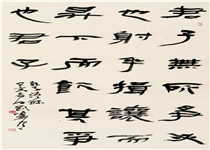 君子無所爭必
也射乎揖讓而
昇下而飲其爭
也君子